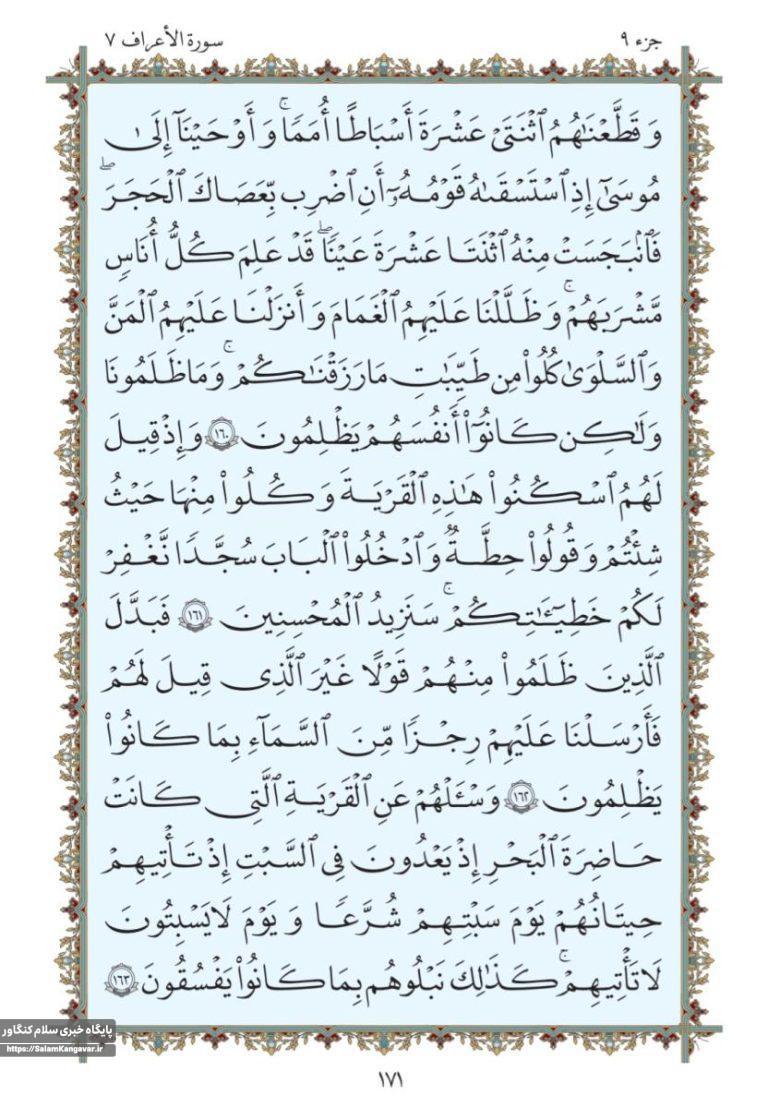 جزء ۹
سورة الأعراف ۷
وَقَطَّعْنَٰهُمُ ٱثْنَتَىْ عَشْرَةَ أَسْبَاطًا أُمَمًا ۚ وَأَوْحَيْنَآ إِلَىٰ
مُوسَىٰٓ إِذِ ٱسْتَسْقَىٰهُ قَوْمُهُۥٓ أَنِ ٱضْرِب بِّعَصَاكَ ٱلْحَجَرَ ۖ
فَٱنۢبَجَسَتْ مِنْهُ ٱثْنَتَا عَشْرَةَ عَيْنًا ۖ قَدْ عَلِمَ كُلُّ أُنَاسٍ
مَّشْرَبَهُمْ ۚ وَظَلَّلْنَا عَلَيْهِمُ ٱلْغَمَامَ وَأَنزَلْنَا عَلَيْهِمُ ٱلْمَنَّ
وَٱلسَّلْوَىٰ كُلُوا۟ مِن طَيِّبَٰتِ مَا رَزَقْنَٰكُمْ ۚ وَمَا ظَلَمُونَا
وَلَٰكِن كَانُوٓا۟ أَنفُسَهُمْ يَظْلِمُونَ ١٦٠ وَإِذْ قِيلَ
لَهُمُ ٱسْكُنُوا۟ هَٰذِهِ ٱلْقَرْيَةَ وَكُلُوا۟ مِنْهَا حَيْثُ
شِئْتُمْ وَقُولُوا۟ حِطَّةٌ وَٱدْخُلُوا۟ ٱلْبَابَ سُجَّدًا نَّغْفِرْ
لَكُمْ خَطِيٓـَٰٔتِكُمْ ۚ سَنَزِيدُ ٱلْمُحْسِنِينَ ١٦١ فَبَدَّلَ
ٱلَّذِينَ ظَلَمُوا۟ مِنْهُمْ قَوْلًا غَيْرَ ٱلَّذِى قِيلَ لَهُمْ
فَأَرْسَلْنَا عَلَيْهِمْ رِجْزًا مِّنَ ٱلسَّمَآءِ بِمَا كَانُوا۟
يَظْلِمُونَ ١٦٢ وَسْـَٔلْهُمْ عَنِ ٱلْقَرْيَةِ ٱلَّتِى كَانَتْ
حَاضِرَةَ ٱلْبَحْرِ إِذْ يَعْدُونَ فِى ٱلسَّبْتِ إِذْ تَأْتِيهِمْ
حِيتَانُهُمْ يَوْمَ سَبْتِهِمْ شُرَّعًا وَيَوْمَ لَا يَسْبِتُونَ
لَا تَأْتِيهِمْ ۚ كَذَٰلِكَ نَبْلُوهُم بِمَا كَانُوا۟ يَفْسُقُونَ ١٦٣
پایگاه خبری سلام کنگاور
https://SalamKangavar.ir
١٧١